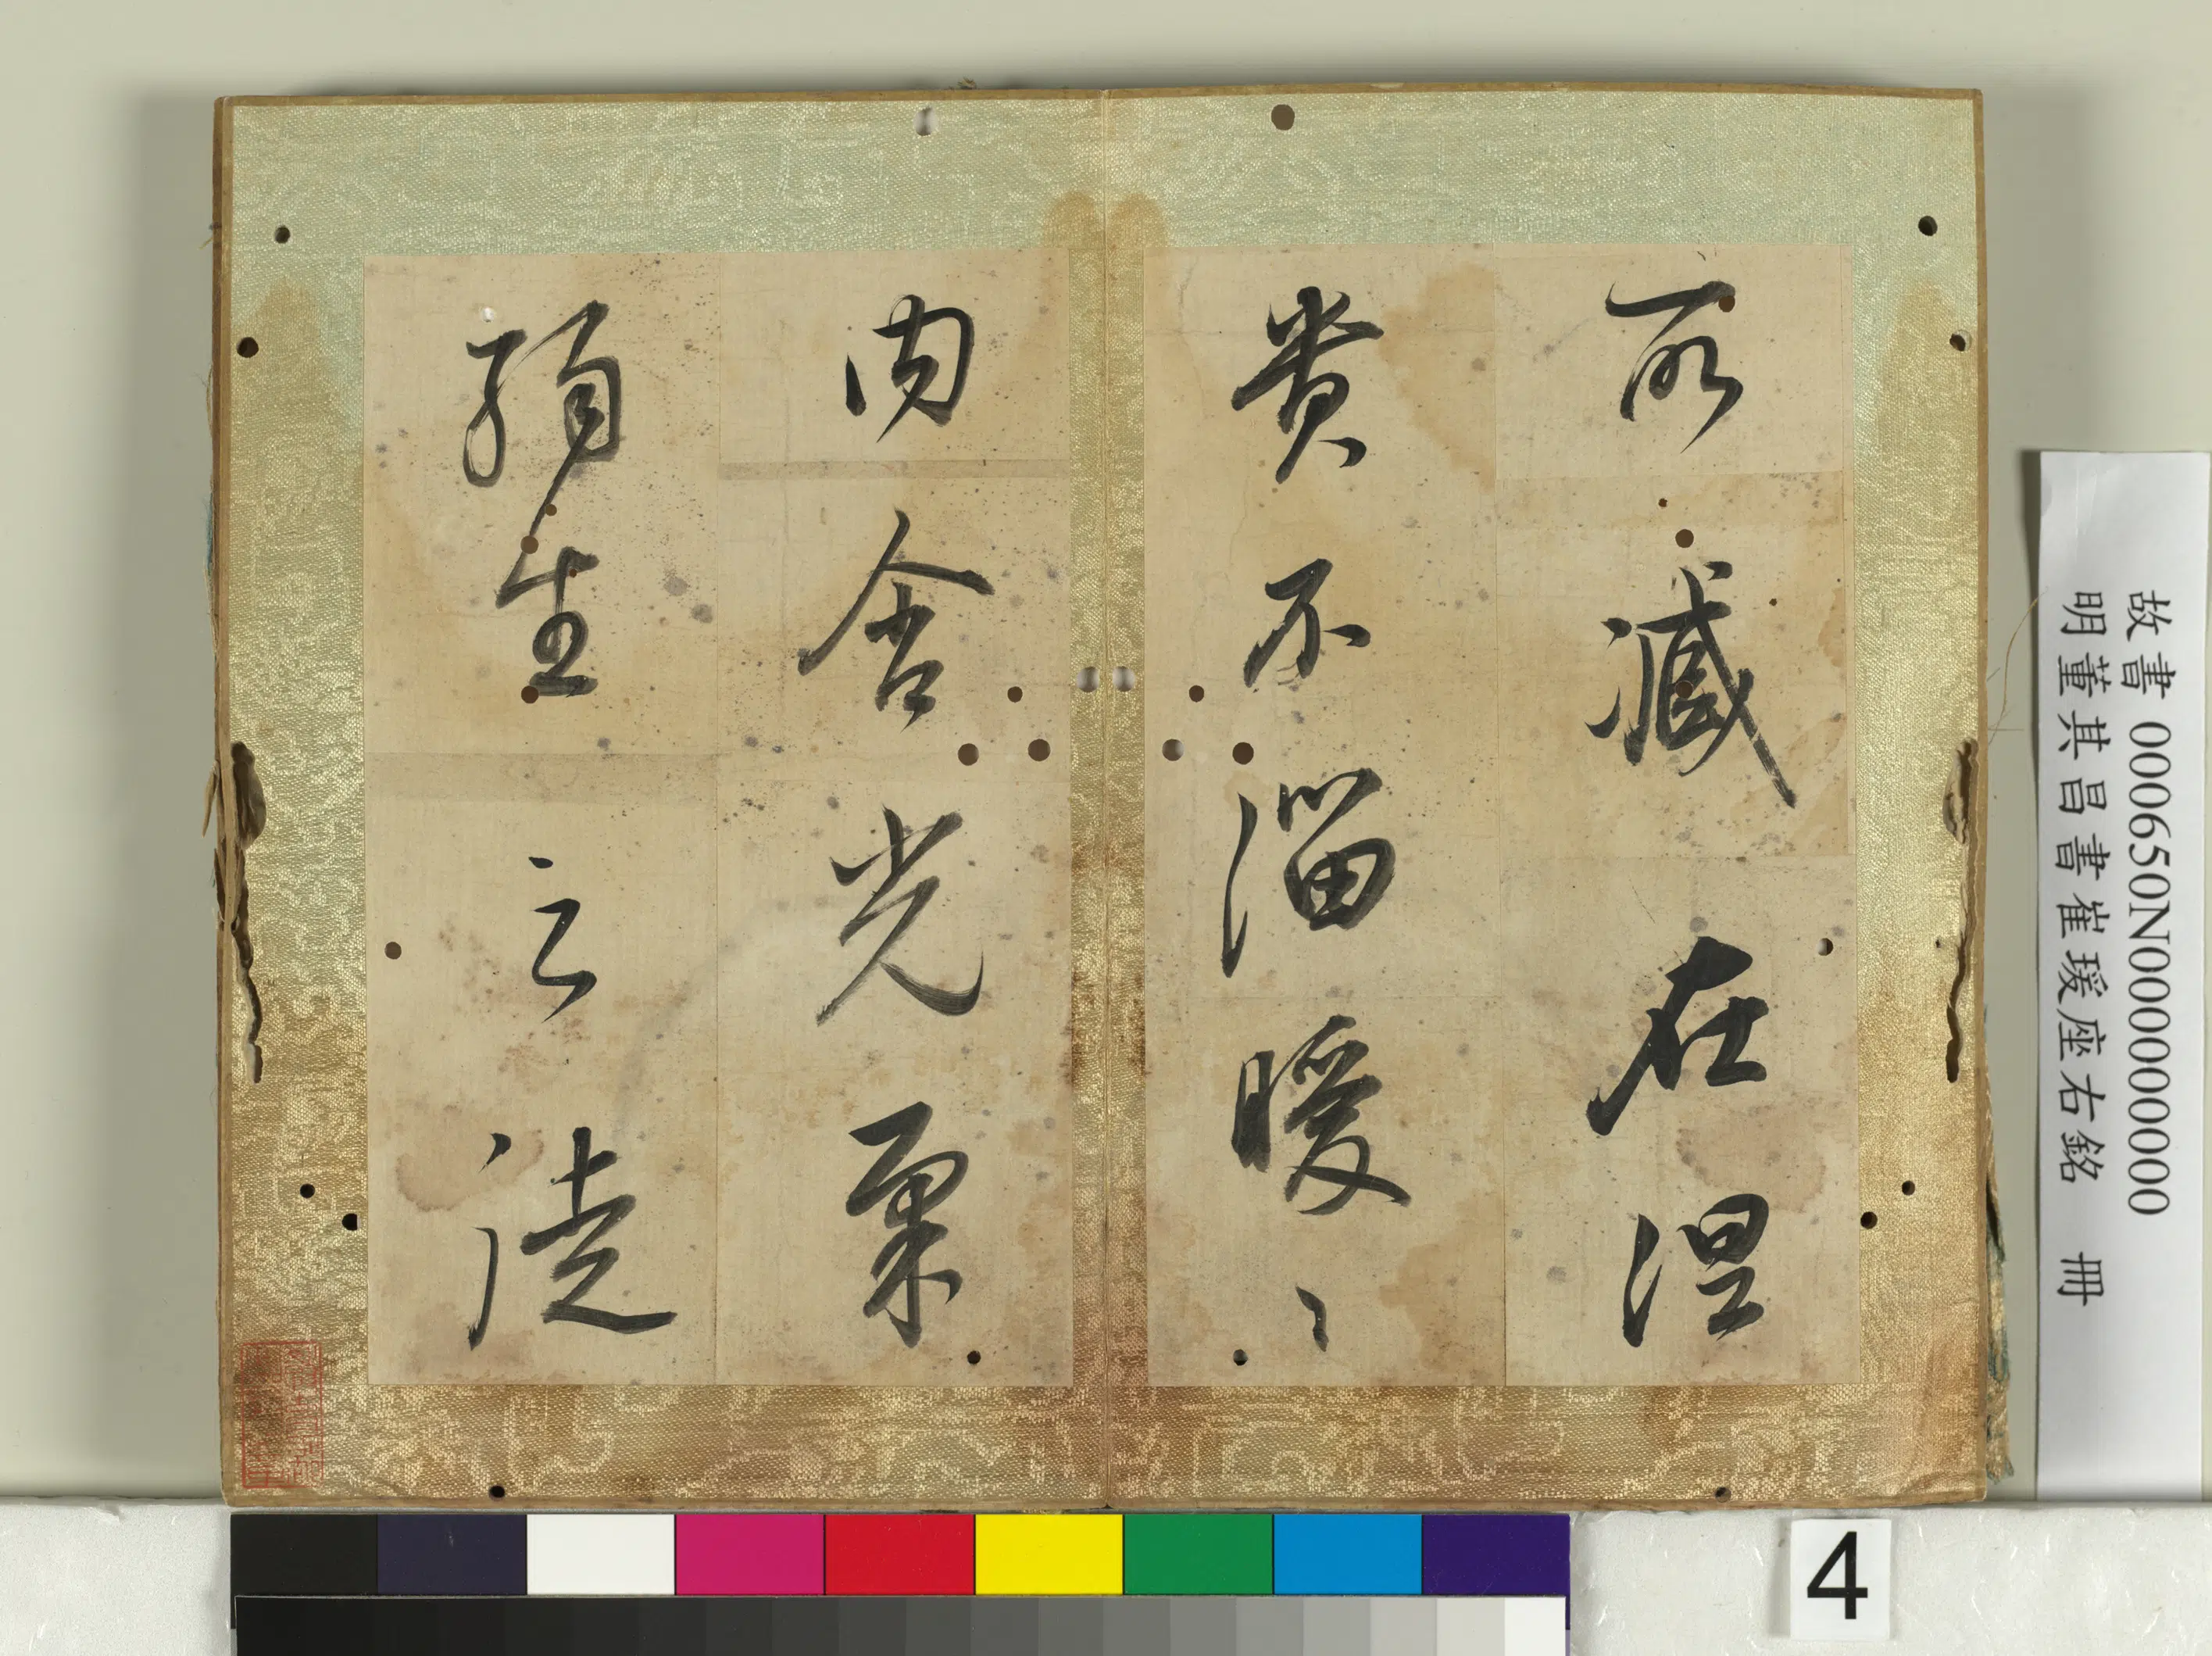 所臧在涅
貴不淄曖〻
内含光柔
弱生之徒
故書000650N000000000
明董其昌書崔瑗座右銘　冊
4